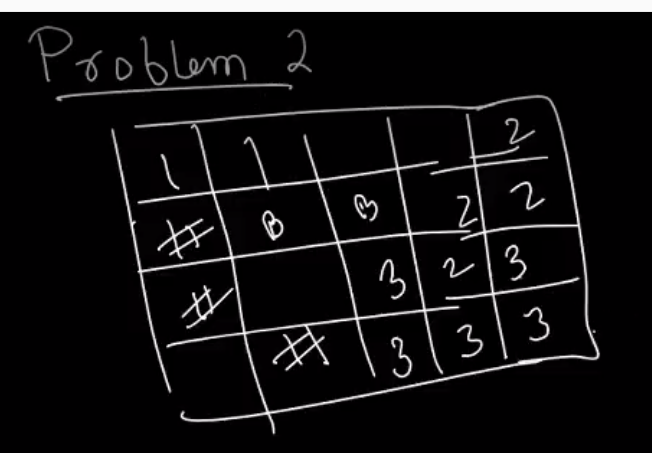 Problem 2
1 1 2
# B B 2 2
# 3 2 3
# 3 3 3